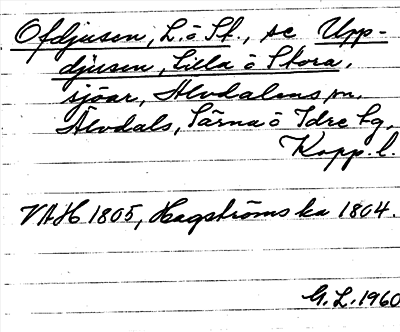 Ofdjusen, L. o St., se Upp-
djusen, Lilla o Stora,
sjöar, Älvdalens sn,
Älvdals, Särna o Idre tg,
Kopp. l.
VAH 1805, Hagströms ka 1804.
G. L. 1960